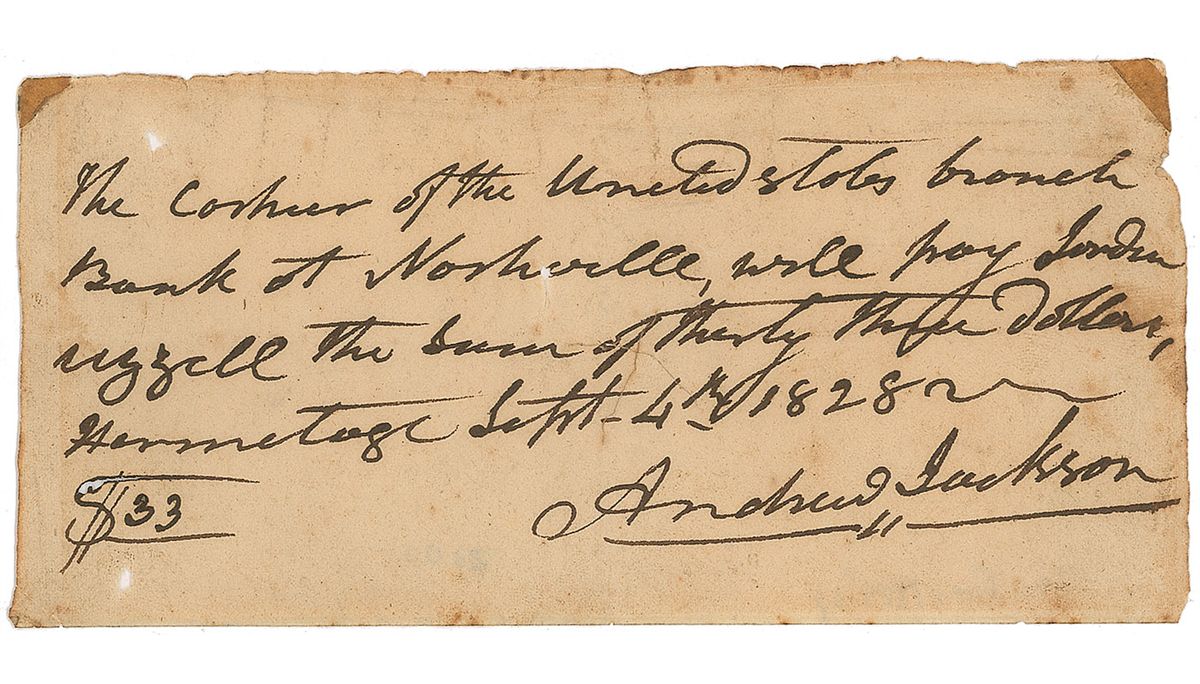 The Cashier of the United states branch
Bank at Nashville, will pay Jordan
uzzell the sum of thirty three Dollars,
Hermetage Sept. 4th 1828
$33 Andrew Jackson